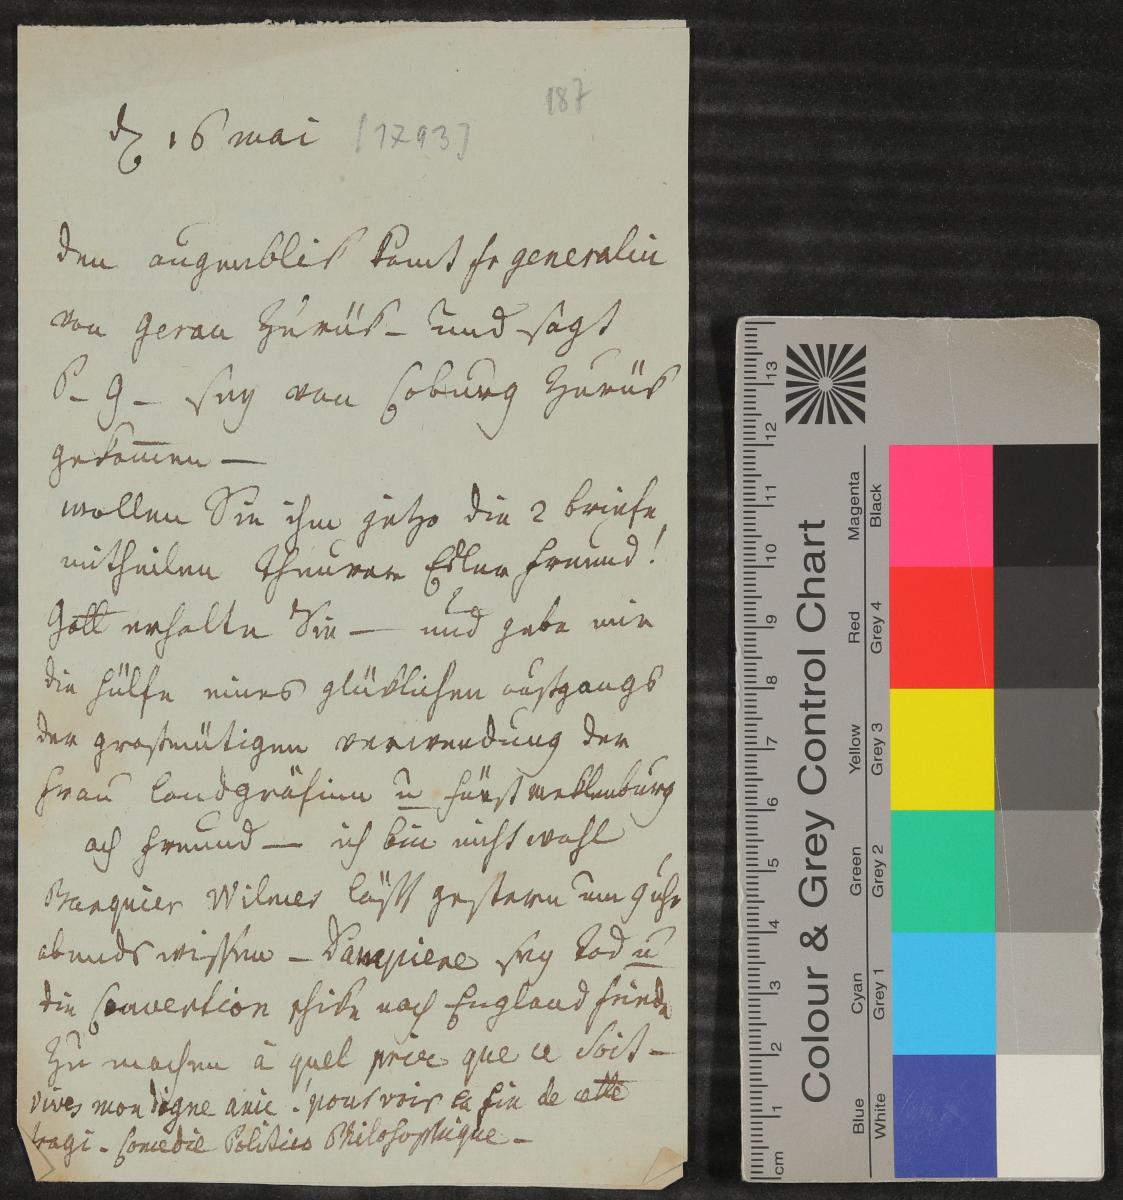 187
d 16 mai [1793]
den augenblik komt fr generalin
von gerau zurük – und sagt
P. G – sey von Coburg zurük
gekommen –
wollen Sie ihm jetzo die 2 briefe
mittheilen theurer Edler freund!
Gott erhalte Sie – und gebe mir
die hülfe eines glüklichen ausgangs
der grosmütigen verwendung der
frau landgräfinn u fürst meklenburg
ach freund – ich bin nicht wohl
Banquier Wilmer läßt gestern um 9 uhr
abends wissen – Dampiere sey tod u
die Convention schike nach England friede
zu machen à quel prix que ce soit –
vives mon digne amie. pour voir la fin de cette
tragi-Comedie Politico Philosophique –
Colour & Grey Control Chart
Magenta
Black
Red
Grey 4
Yellow
Grey 3
Green
Grey 2
Cyan
Grey 1
Blue
White
13
12
11
10
9
8
7
6
5
4
3
2
1
cm